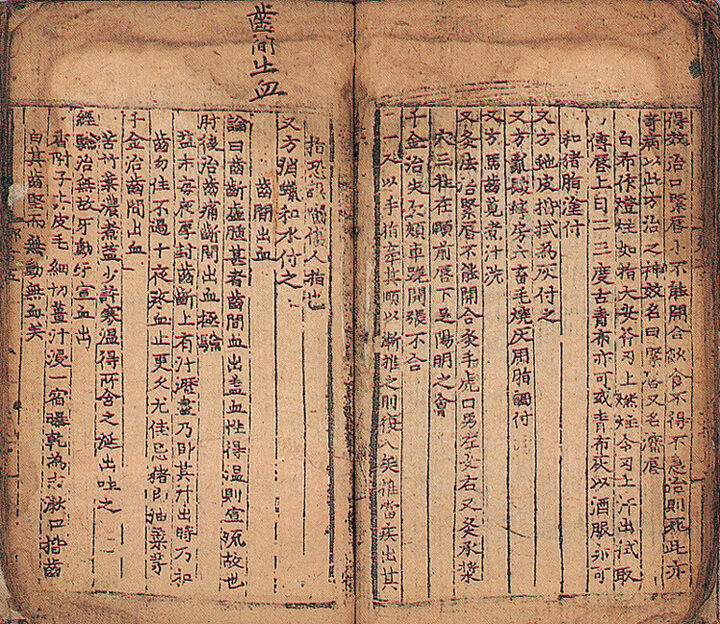 齒間止血
得效治口緊唇小不能開合飲食不得不急治則死此亦
奇病以此方治之神效名曰緊唇又名瀋唇
白布作燈炷如指大安斧刃上燃炷令刃上汗出拭取
傅唇上日二三度古青布亦可或青布灰以酒服亦可
和猪脂塗付
又方蛇皮拭為灰付之
又方亂髮蜂房六畜毛燒灰用脂調付
又方馬齒莧煮汁洗
又灸法治緊唇不能開合灸手虎口男左女右又灸承漿
穴三壯在頤前唇下足陽明之會
千金治失欠頰車蹉開張不合
一人以手指牽其頤以漸推之則復入矣推當疾出其
指恐誤嚙傷人指也
又方消蠟和水付之
齒間出血
論曰齒齗虛腫甚者齒間血出盖血性得溫則宣流故也
肘後治齒痛齗間出血極驗
塩末每夜厚封齒齗上有汁瀝盡乃卧其汁出時乃和
齒勿住不過十夜疼血止更久尤佳忌猪油菜等
千金治齒間出血
苦竹葉濃煮盖少許寒溫得所含之涎出吐之
經驗治無故牙動牙宣血出
香附子去皮毛細切薑汁浸一宿曝乾為末漱口揩齒
自其齒堅而無動無血矣